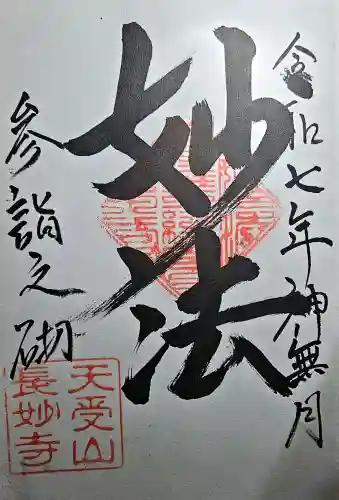 令和七年神無月
妙法
参詣之砌
天受山
長妙寺